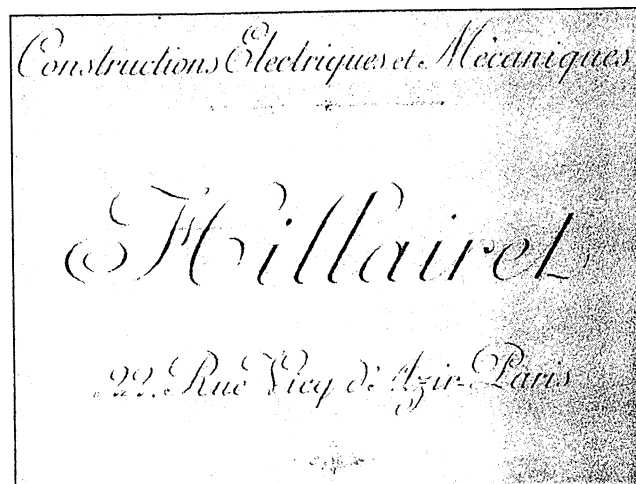 Constructions Electriques et Mécaniques
Hillairet
22. Rue Vicq d'Azir Paris